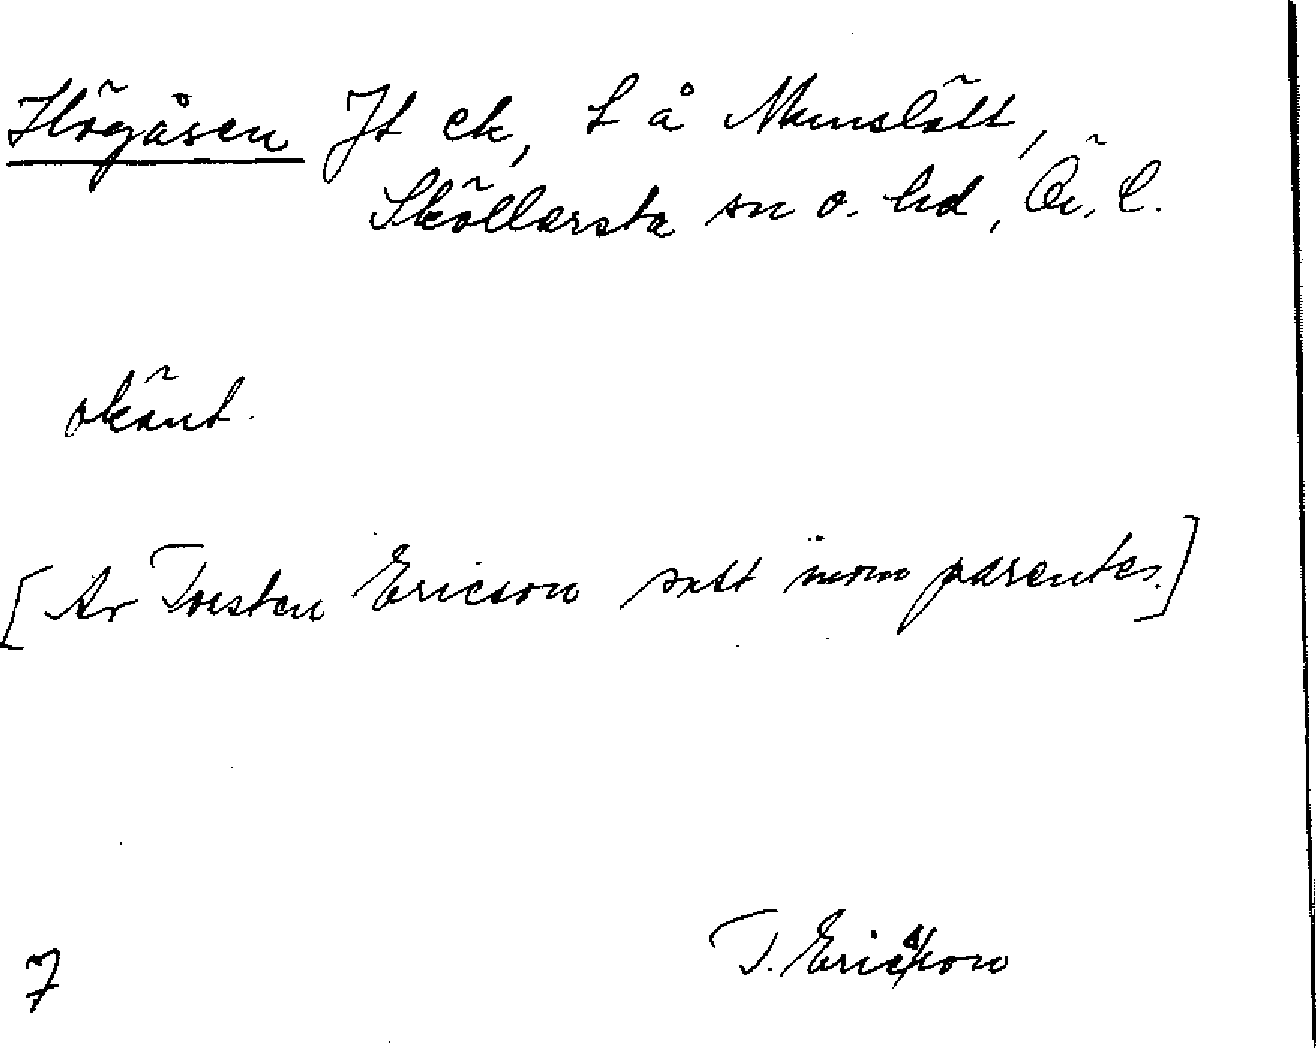 Högåsen Jt ek, L å Munslätt,
Sköllersta sn o. hd, Ör. l.
okänt.
[Av Torsten Ericson satt inom parentes.]
7 T. Ericson